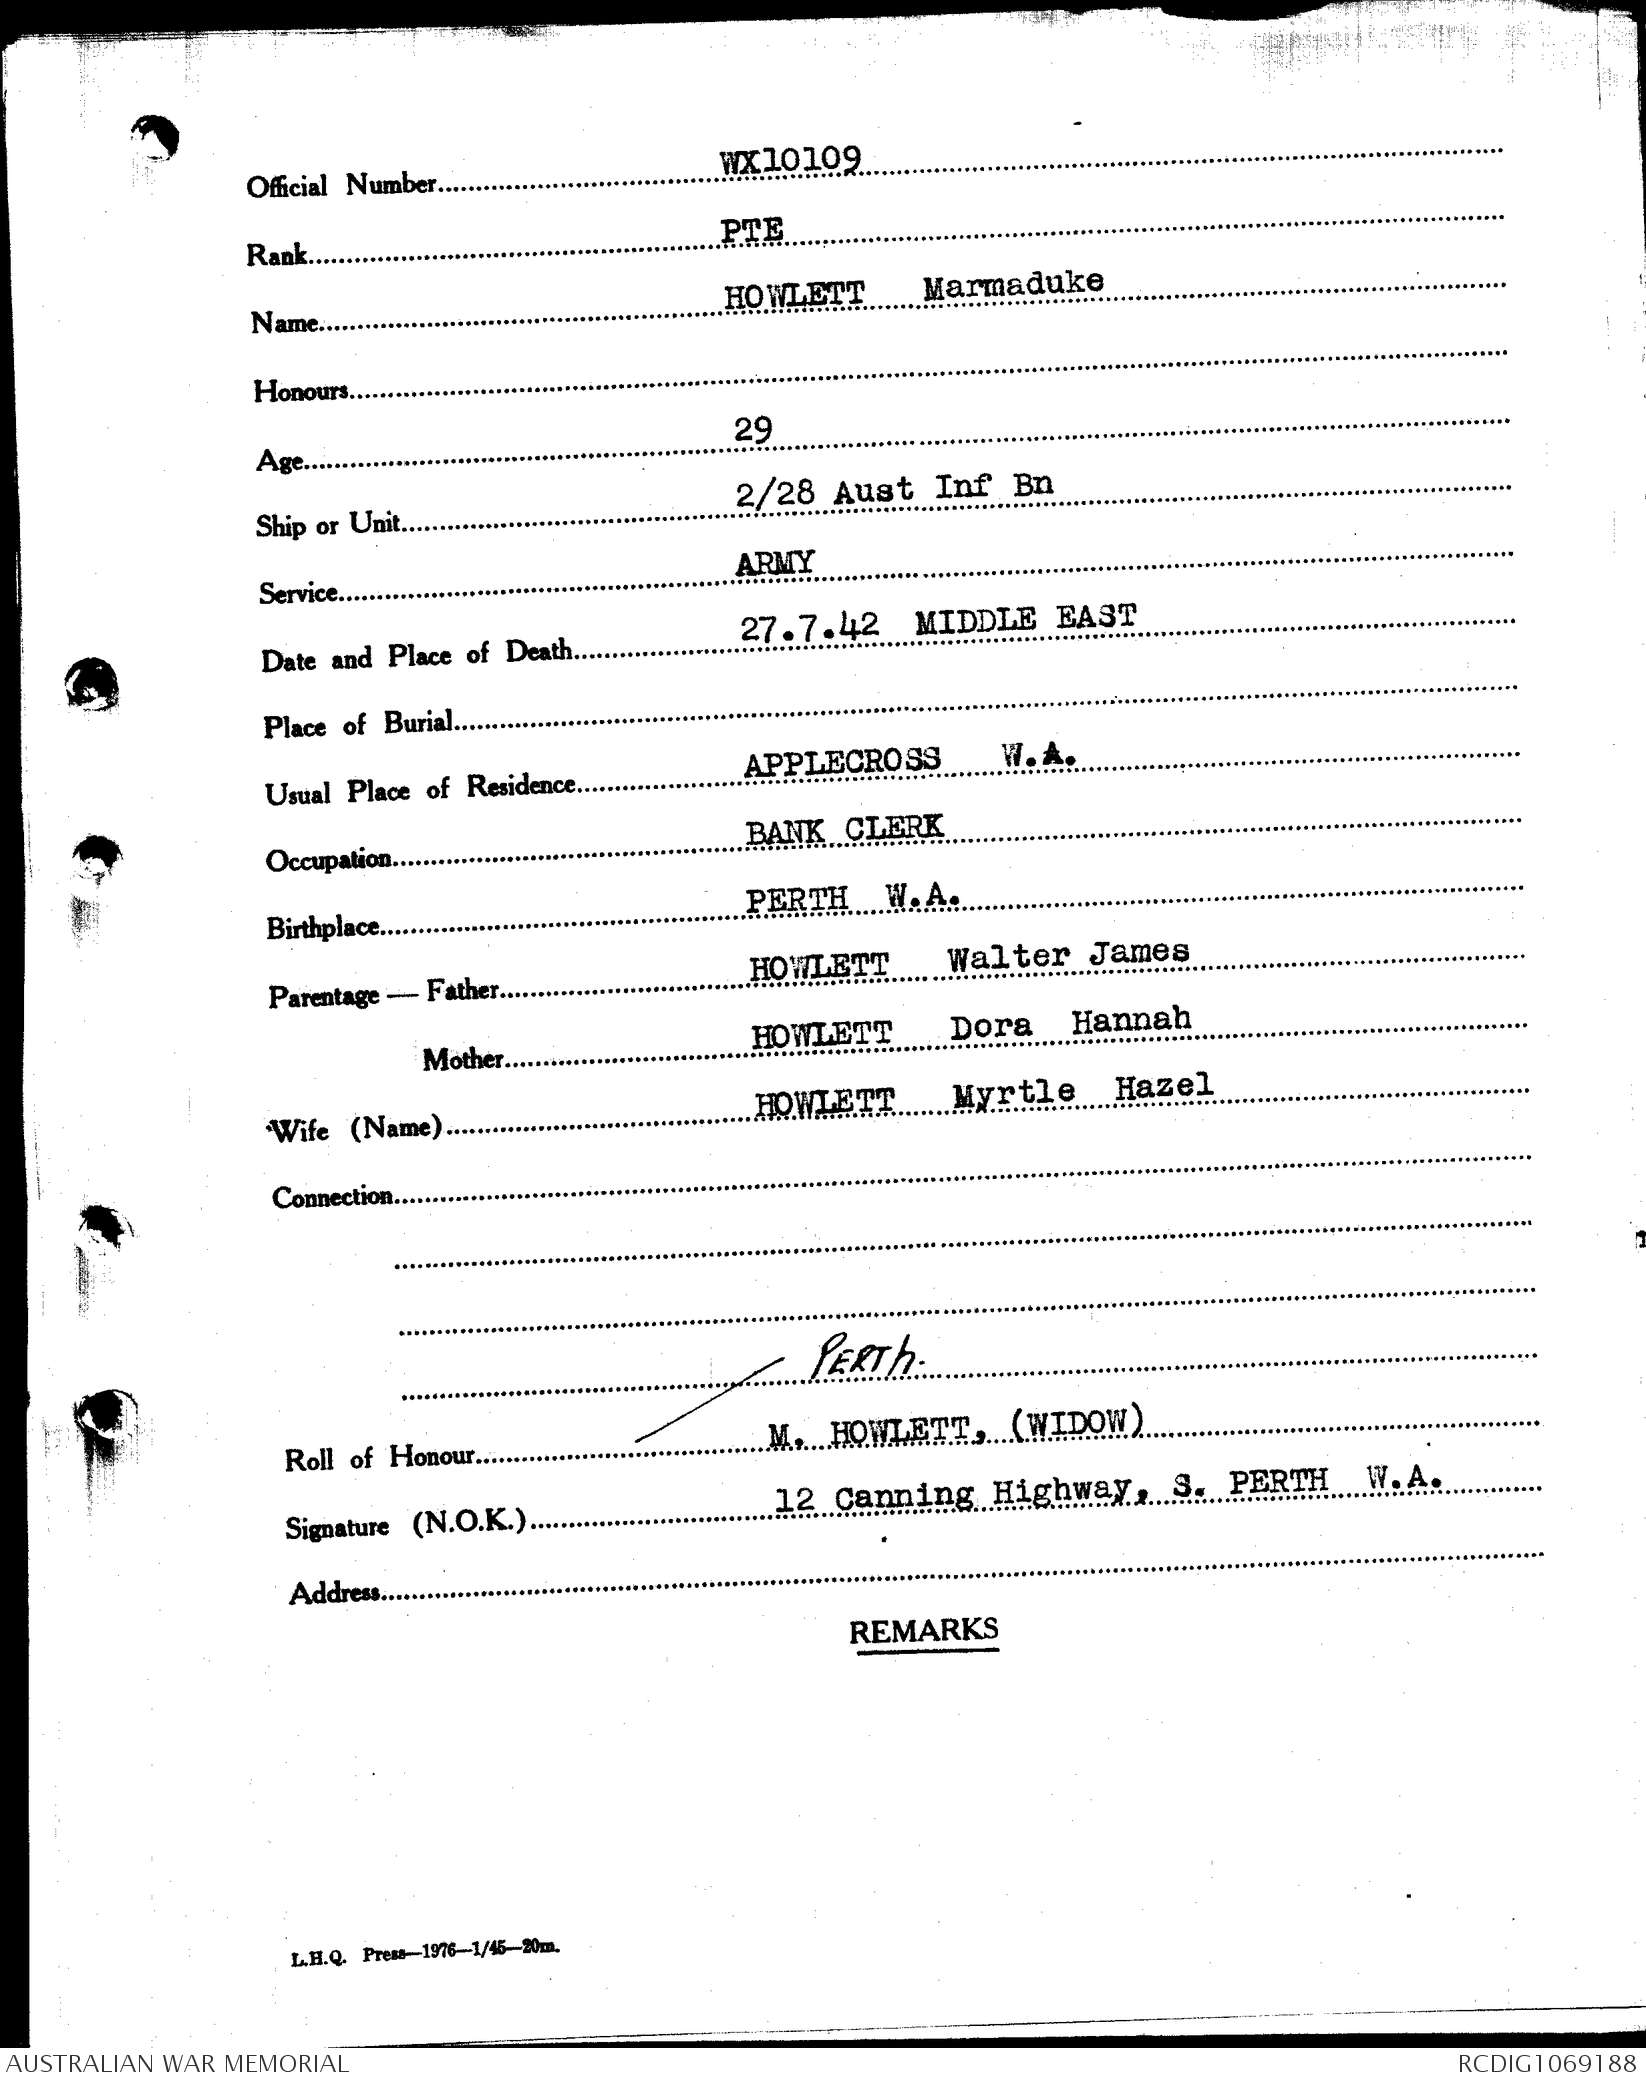 Official Number WX10109
Rank PTE
Name HOWLETT Marmaduke
Honours
Age 29
Ship or Unit 2/28 Aust Inf Bn
Service ARMY
Date and Place of Death 27.7.42 MIDDLE EAST
Place of Burial
Usual Place of Residence APPLECROSS W.A.
Occupation BANK CLERK
Birthplace PERTH W.A.
Parentage — Father HOWLETT Walter James
Mother HOWLETT Dora Hannah
Wife (Name) HOWLETT Myrtle Hazel
Connection
PERTH.
Roll of Honour M. HOWLETT, (WIDOW)
Signature (N.O.K.) 12 Canning Highway, S. PERTH W.A.
Address
REMARKS
L.H.Q. Press—1976—1/45—20m.
AUSTRALIAN WAR MEMORIAL RCDIG1069188